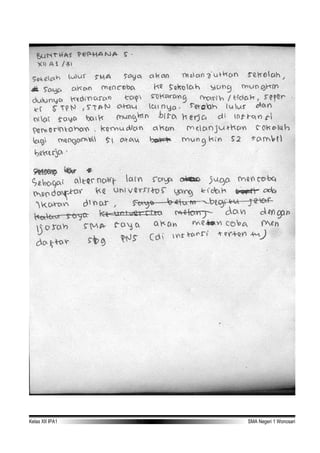 BUNTHAS PERMANA S.
XII A1 /31
Setelah lulus SMA saya akan melanjutkan sekolah,
Saya akan mencoba ke sekolah yang mungkin
dulunya kedinasan tapi sekarang masih / tidak, seper
ti STPN, STAN atau lainya. Setelah lulus dan
nilai saya baik mungkin bisa kerja di instansi
pemerintahan. kemudian akan melanjutkan sekolah
lagi mengambil S1 atau mungkin S2 sambil
bekerja.
Sebagai alternatif lain saya juga mencoba
mendaftar ke universitas yang tidak ada
ikatan dinas, saya belum begitu jelas
kalau saya ke universitas mana, dan dengan
ijasah SMA saya akan mencoba men
daftar sbg PNS (di instansi tertentu)
Kelas XII IPA1
SMA Negeri 1 Wonosari